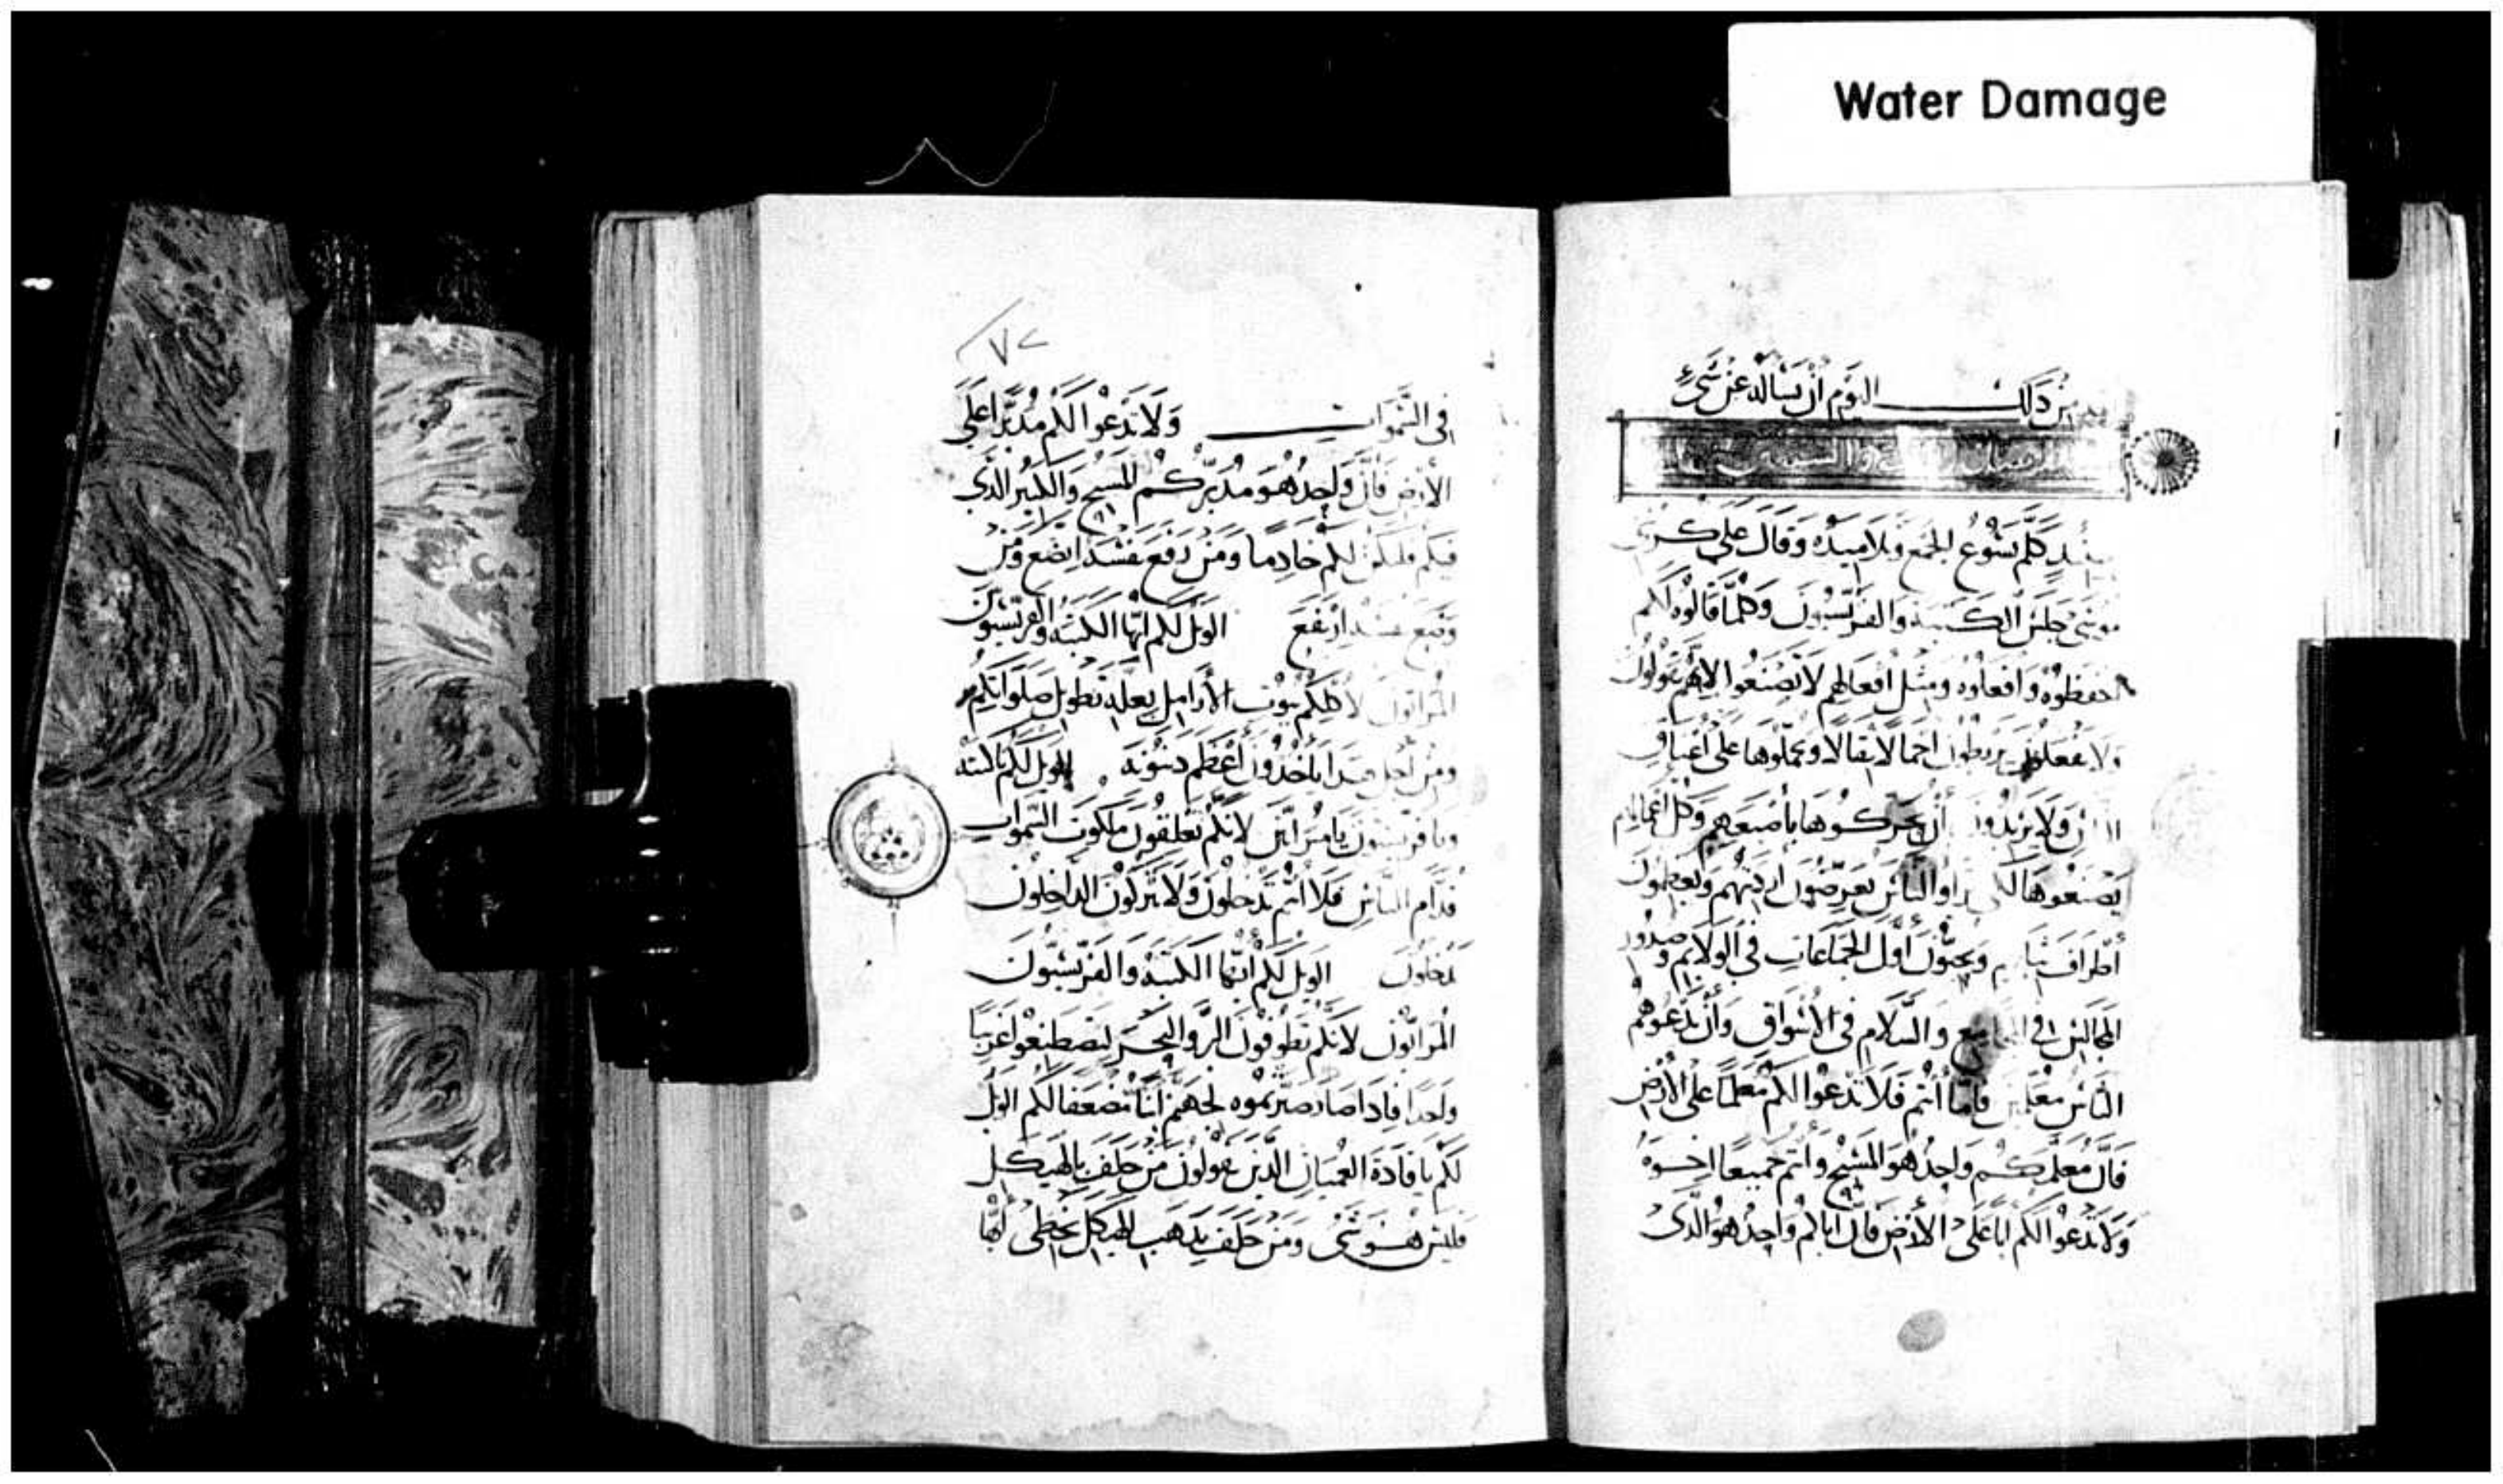 Water Damage
من ذلك اليوم أن يسأله عن شيء
كلم يسوع الجمع وتلاميذه وقال على كرسي
موسى جلس الكتبة والفريسيون وكلما قالوه لكم
احفظوه وافعلوه ومثل افعالهم لا تصنعوا لأنهم يقولون
ولا يفعلون يربطون احمالا ثقالا ويحملوها على اعناق
ولا يريدون أن يحركوها بأصبعهم وكل اعمالهم
يصنعوها والناس يعرضون ويعظمون
أطراف ويحبون أول الجماعات في الولائم وصدور
المجالس في المجامع والسلام في الأسواق وأن يدعوهم
الناس معلمين فأما أنتم فلا تدعوا لكم معلما على الأرض
فأن معلمكم واحد هو المسيح وأنتم جميعا اخوة
ولا تدعوا لكم ابا على الأرض فأن اباكم واحد هو الذي
٧٢
في السموات ولا تدعوا لكم مدبرا على
الأرض فأن واحد هو مدبركم المسيح والكبير الذي
فيكم فليكن لكم خادما ومن رفع نفسه اتضع ومن
وضع نفسه ارتفع الويل لكم ايها الكتبة والفريسيون
المراؤون بيوت الأرامل بعلة تطويل صلواتكم
ومن اجل هذا تأخذون أعظم دينونة الويل لكم يا كتبة
ويا فريسيون يا مرائين لأنكم تغلقون ملكوت السموات
قدام الناس فلا أنتم تدخلون ولا تتركون الداخلون
يدخلون الويل لكم أيها الكتبة والفريسيون
المراؤون لأنكم تطوفون البر والبحر لتصطنعوا غريبا
واحدا فإذا صار صيرتموه لجهنم مضعفا لكم الويل
لكم يا قادة العميان الذين يقولون من حلف بالهيكل
فليس هو شيء ومن حلف بذهب الهيكل يخطئ أيها